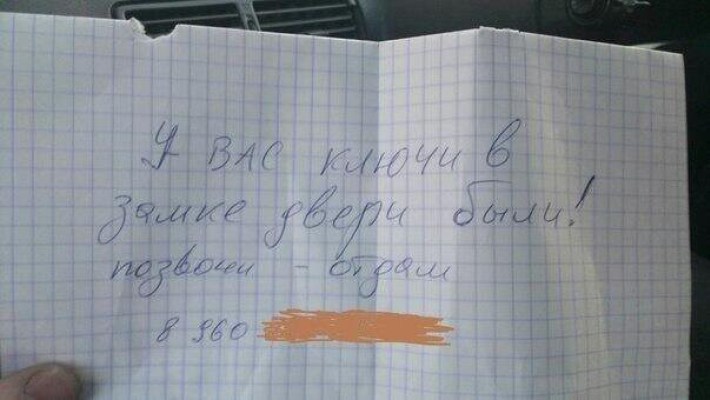 У ВАС ключи в
замке двери были!
позвони - отдам
8 960